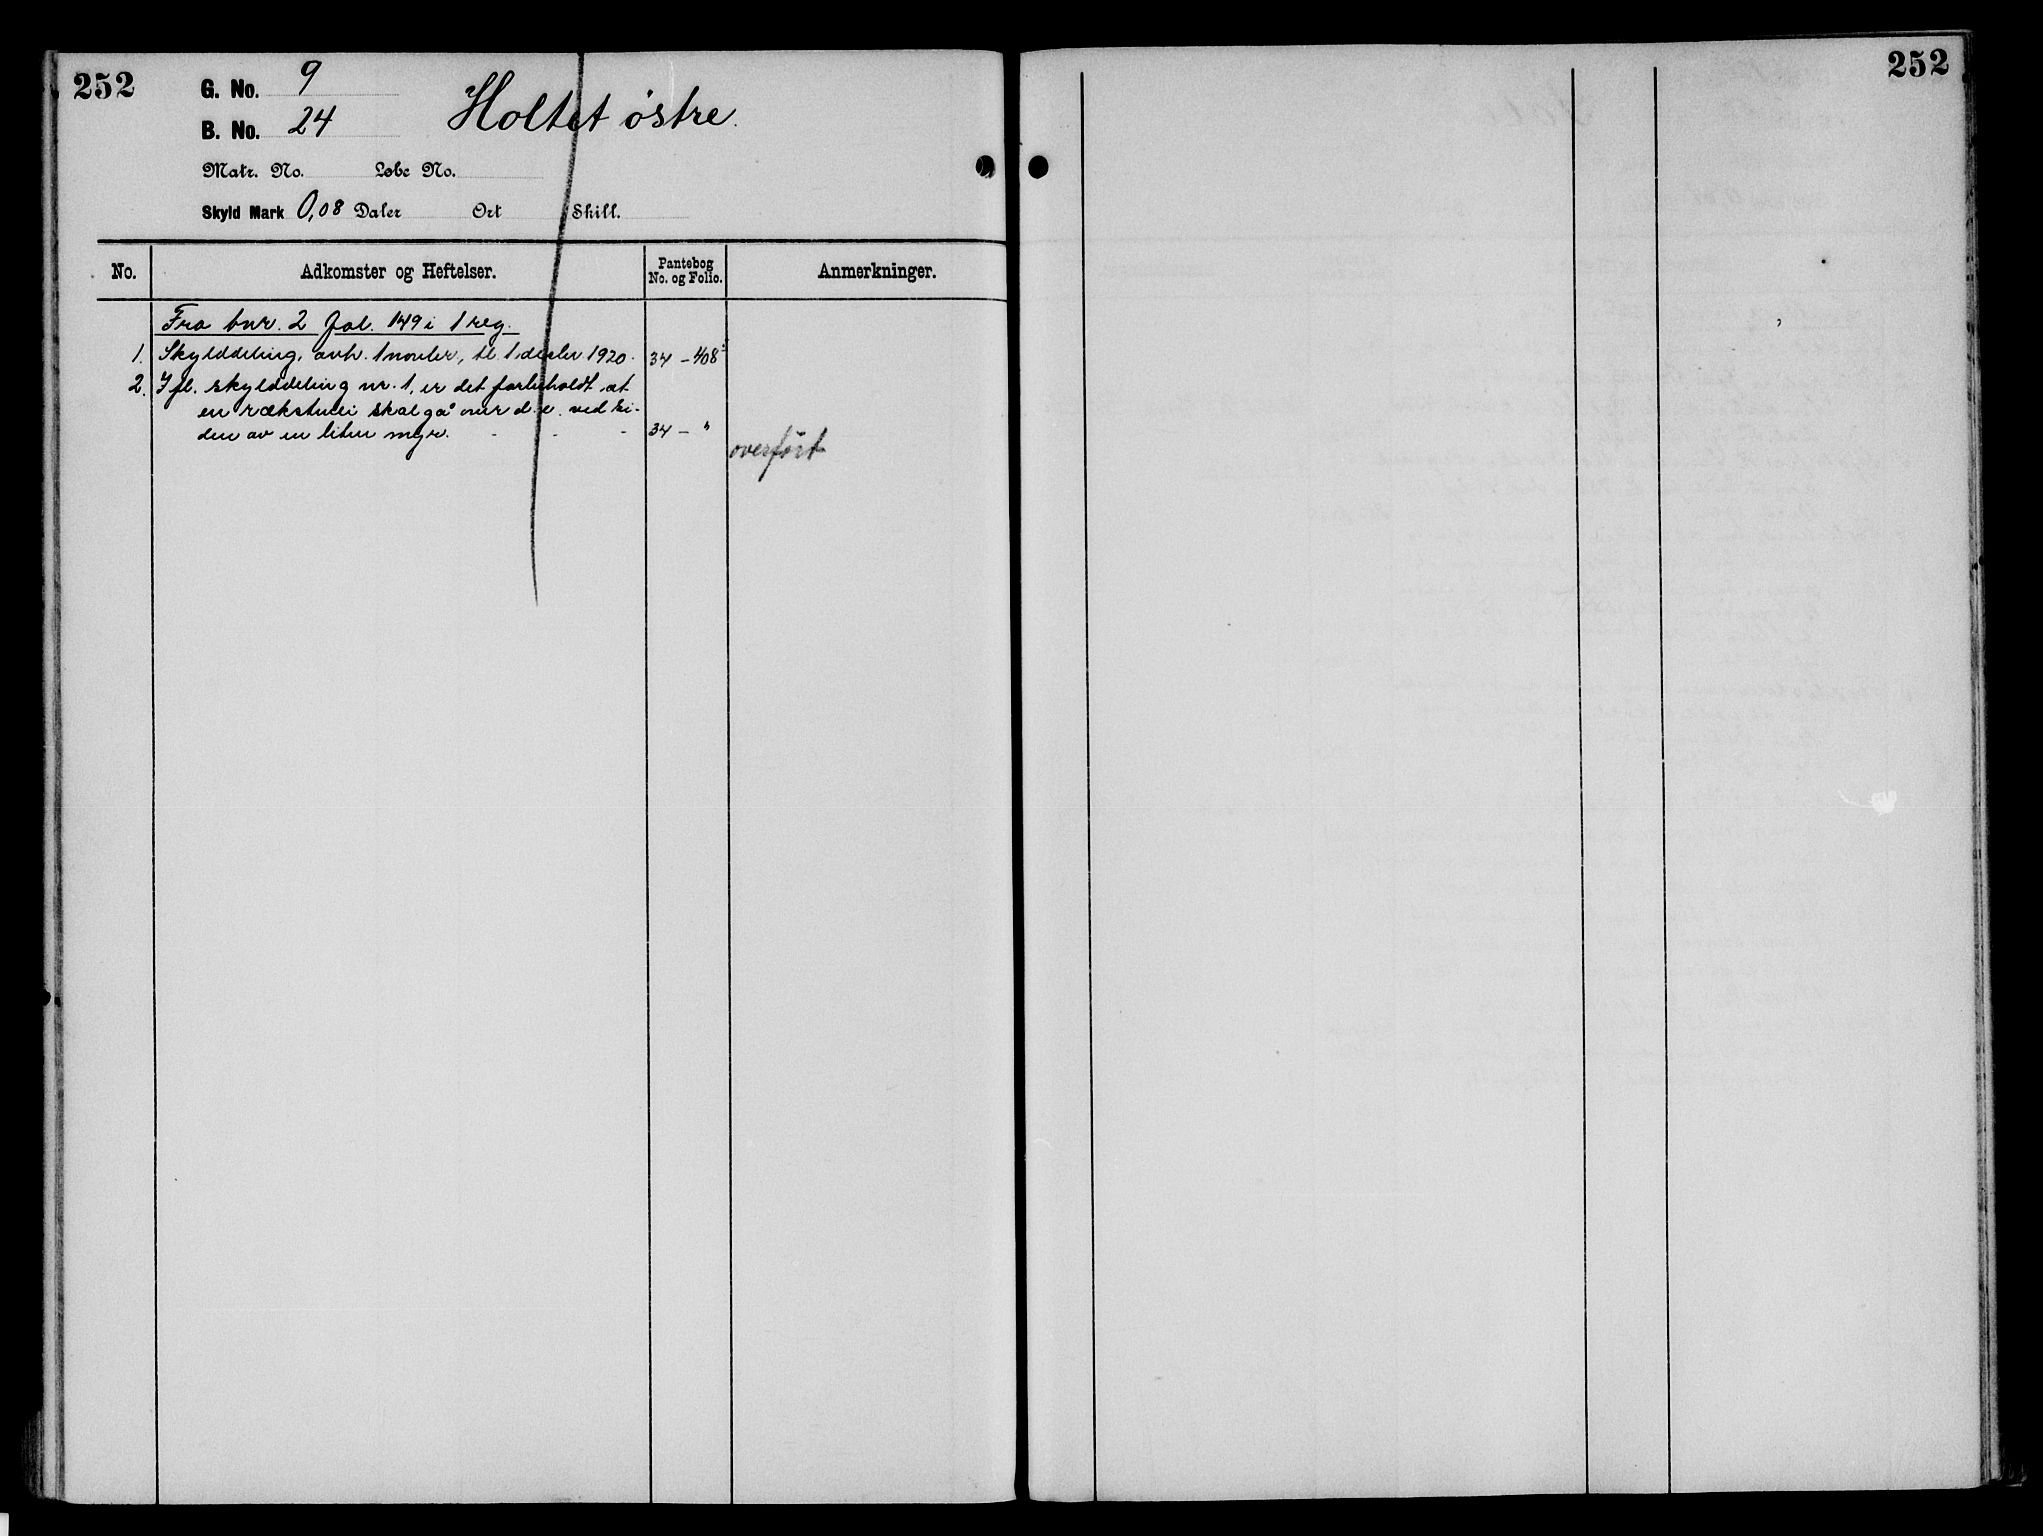 252
G. No. 9
B. No. 24
Holtet østre.
Matr. No. Løbe No.
Skyld Mark 0,08 Daler Ort Skill.
No. Adkomster og Heftelser. Pantebog No. og Folio. Anmerkninger.
Fra bnr. 2 fol. 149 i 1 reg.
1. Skylddeling, avh. 1 novbr, tl. 1 desbr 1920. 34 - 408
2. Ifl. skylddeling nr. 1, er det forbeholdt at
en rækstuvei skal gå over d. e. ved si-
den av en liten myr. - - - 34 - "
overført
252